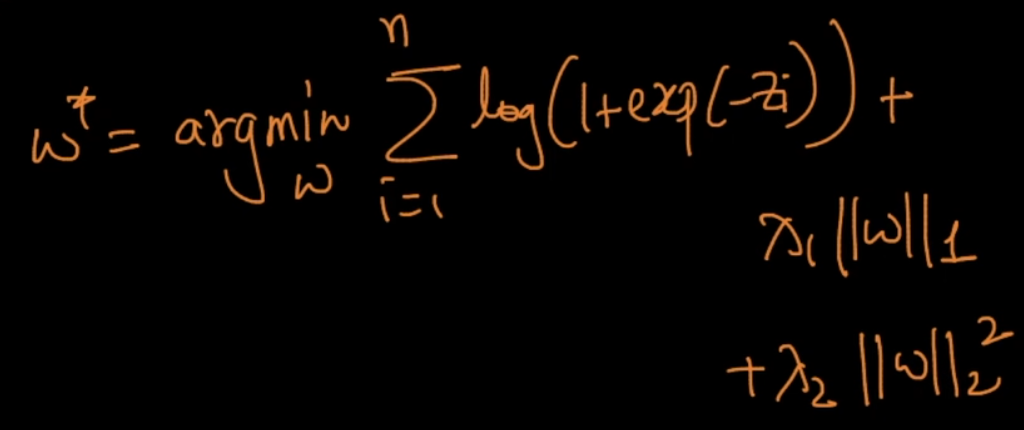 w* = argmin_w Σ_{i=1}^{n} log(1+exp(-zi)) +
λ₁ ||w||₁
+ λ₂ ||w||₂²